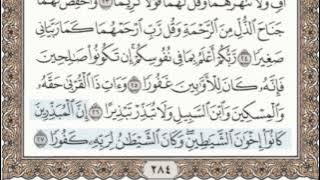 أُفٍّ وَلَا تَنْهَرْهُمَا وَقُل لَّهُمَا قَوْلًا كَرِيمًا ٢٣ وَاخْفِضْ لَهُمَا
جَنَاحَ الذُّلِّ مِنَ الرَّحْمَةِ وَقُل رَّبِّ ارْحَمْهُمَا كَمَا رَبَّيَانِي
صَغِيرًا ٢٤ رَّبُّكُمْ أَعْلَمُ بِمَا فِي نُفُوسِكُمْ إِن تَكُونُوا صَالِحِينَ
فَإِنَّهُ كَانَ لِلْأَوَّابِينَ غَفُورًا ٢٥ وَآتِ ذَا الْقُرْبَى حَقَّهُ
وَالْمِسْكِينَ وَابْنَ السَّبِيلِ وَلَا تُبَذِّرْ تَبْذِيرًا ٢٦ إِنَّ الْمُبَذِّرِينَ
كَانُوا إِخْوَانَ الشَّيَاطِينِ وَكَانَ الشَّيْطَانُ لِرَبِّهِ كَفُورًا ٢٧
٢٨٤